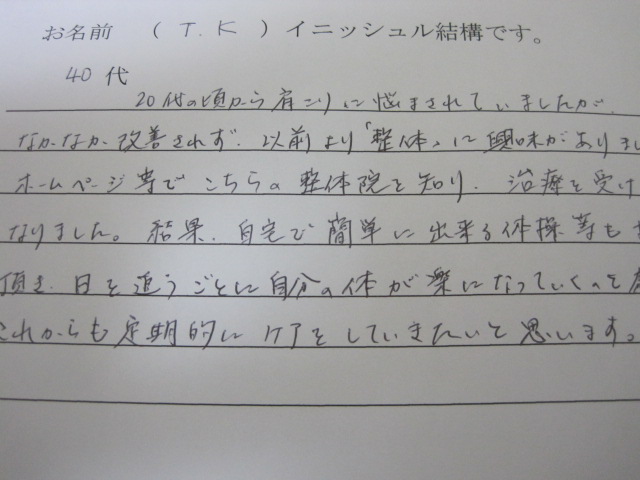 お名前 （ T. K ）イニッシュル結構です。
40代
20代の頃から肩こりに悩まされていましたが、
なかなか改善されず、以前より「整体」に興味がありまし
ホームページ等でこちらの整体院を知り、治療を受け
なりました。結果、自宅で簡単に出来る体操等も
頂き、日を追うごとに自分の体が楽になっていくのを
これからも定期的にケアをしていきたいと思います。